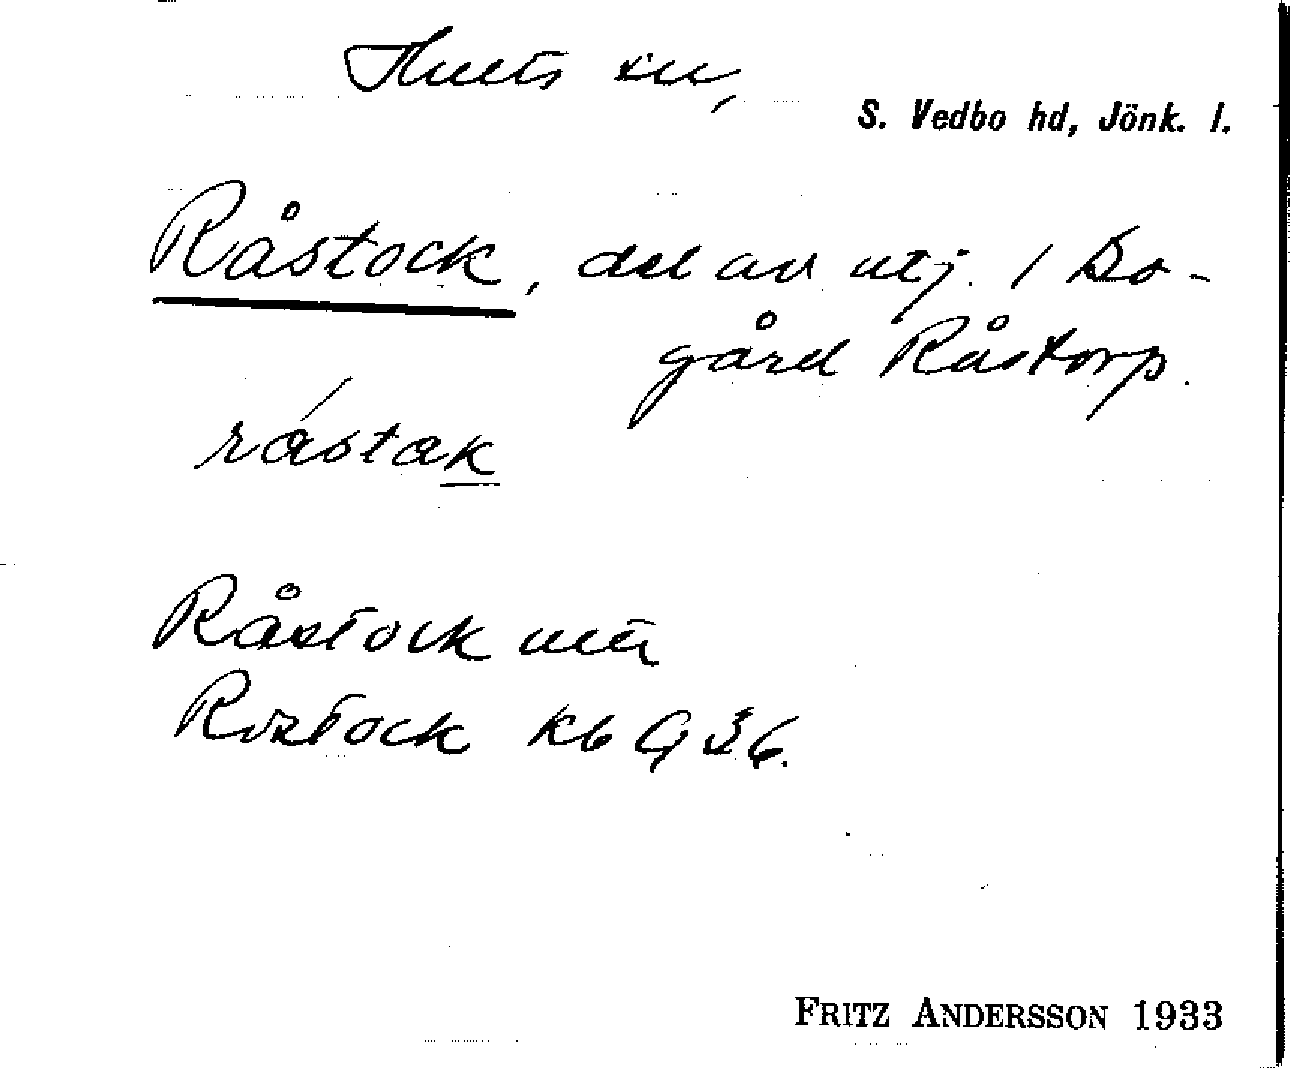 Hults sn,
S. Vedbo hd, Jönk. l.
Råstock, del av utj. 1 Bo-
gård Råstorp.
råstak
Råstock
Rostock kb G 36.
FRITZ ANDERSSON 1933